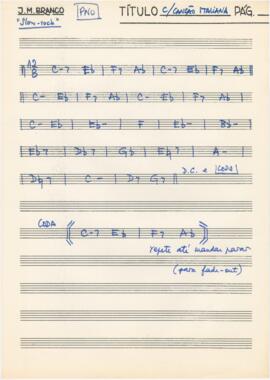 J.M. BRANCO
"Slow-rock"
PNO
TÍTULO C/ CANÇÃO ITALIANA PÁG.
12/8 C-7 Eb | F7 Ab | C-7 Eb | F7 Ab
C- Eb | F7 Ab | C- Eb | F7 Ab
C- Eb | Eb- | F | Eb- | Bb-
Eb7 | Db7 | Gb | Eb7 | A-
D7 | C- | D7 G7 D.C. e CODA
CODA C-7 Eb | F7 Ab
repete até mandar parar
(para fade-out)